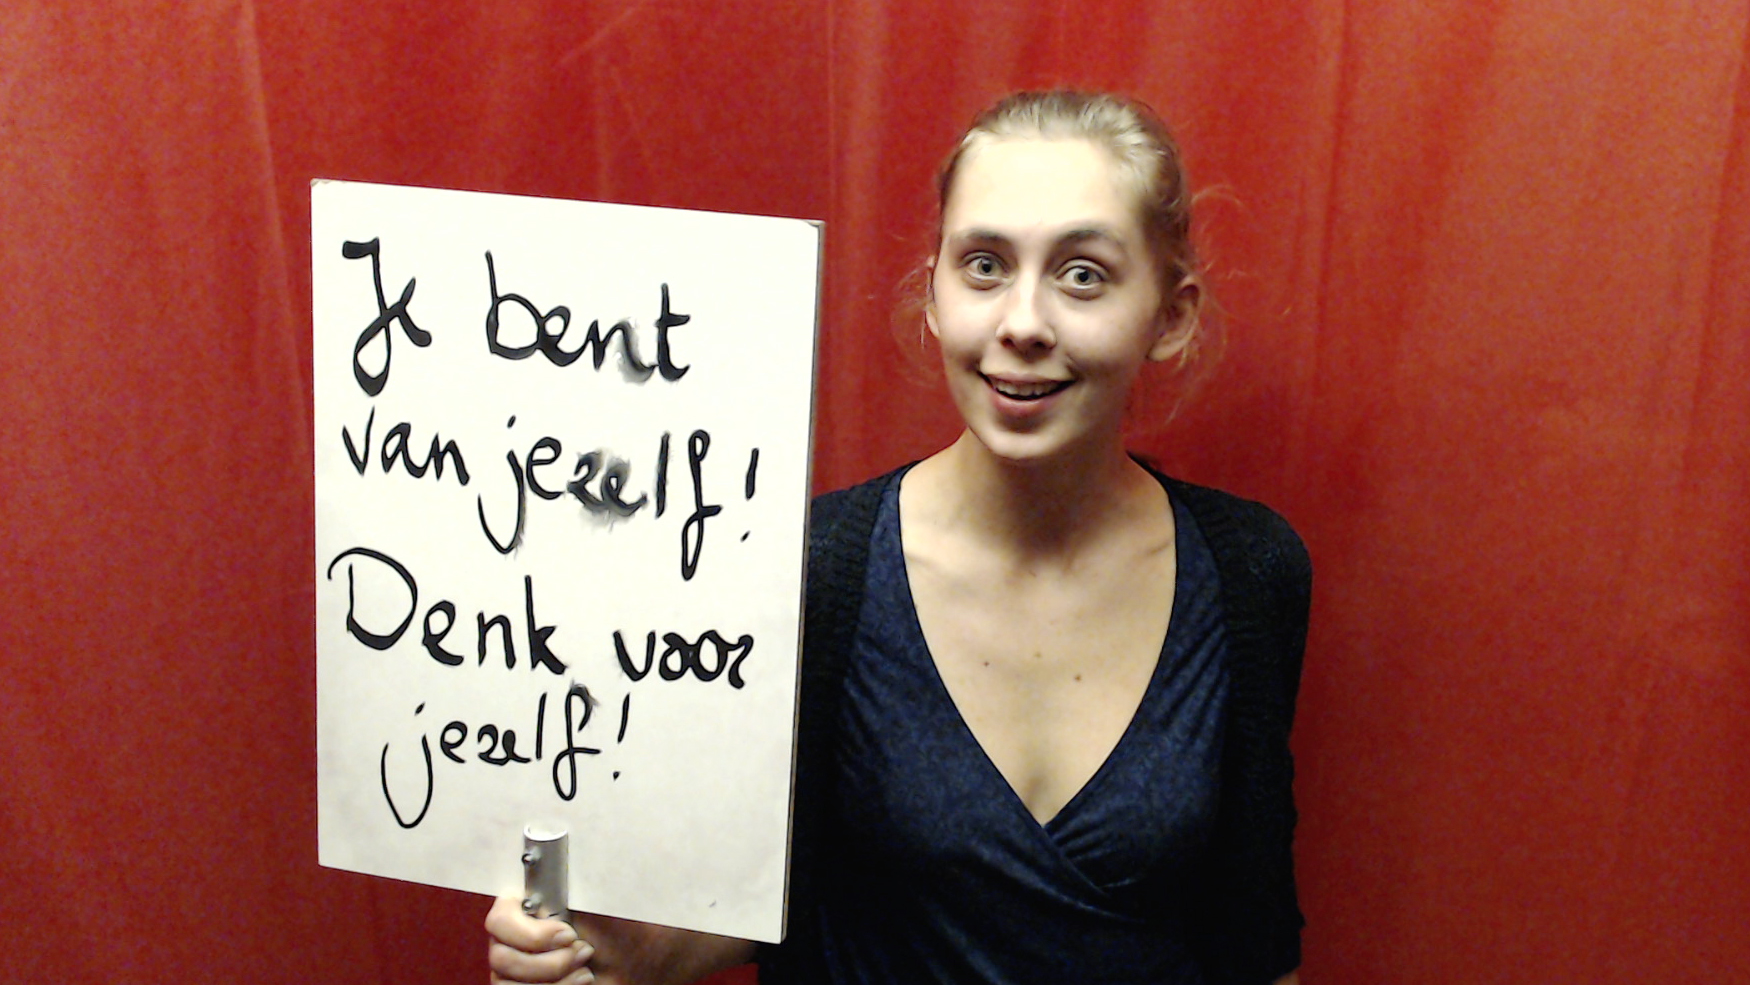 Je bent
van jezelf!
Denk voor
jezelf!